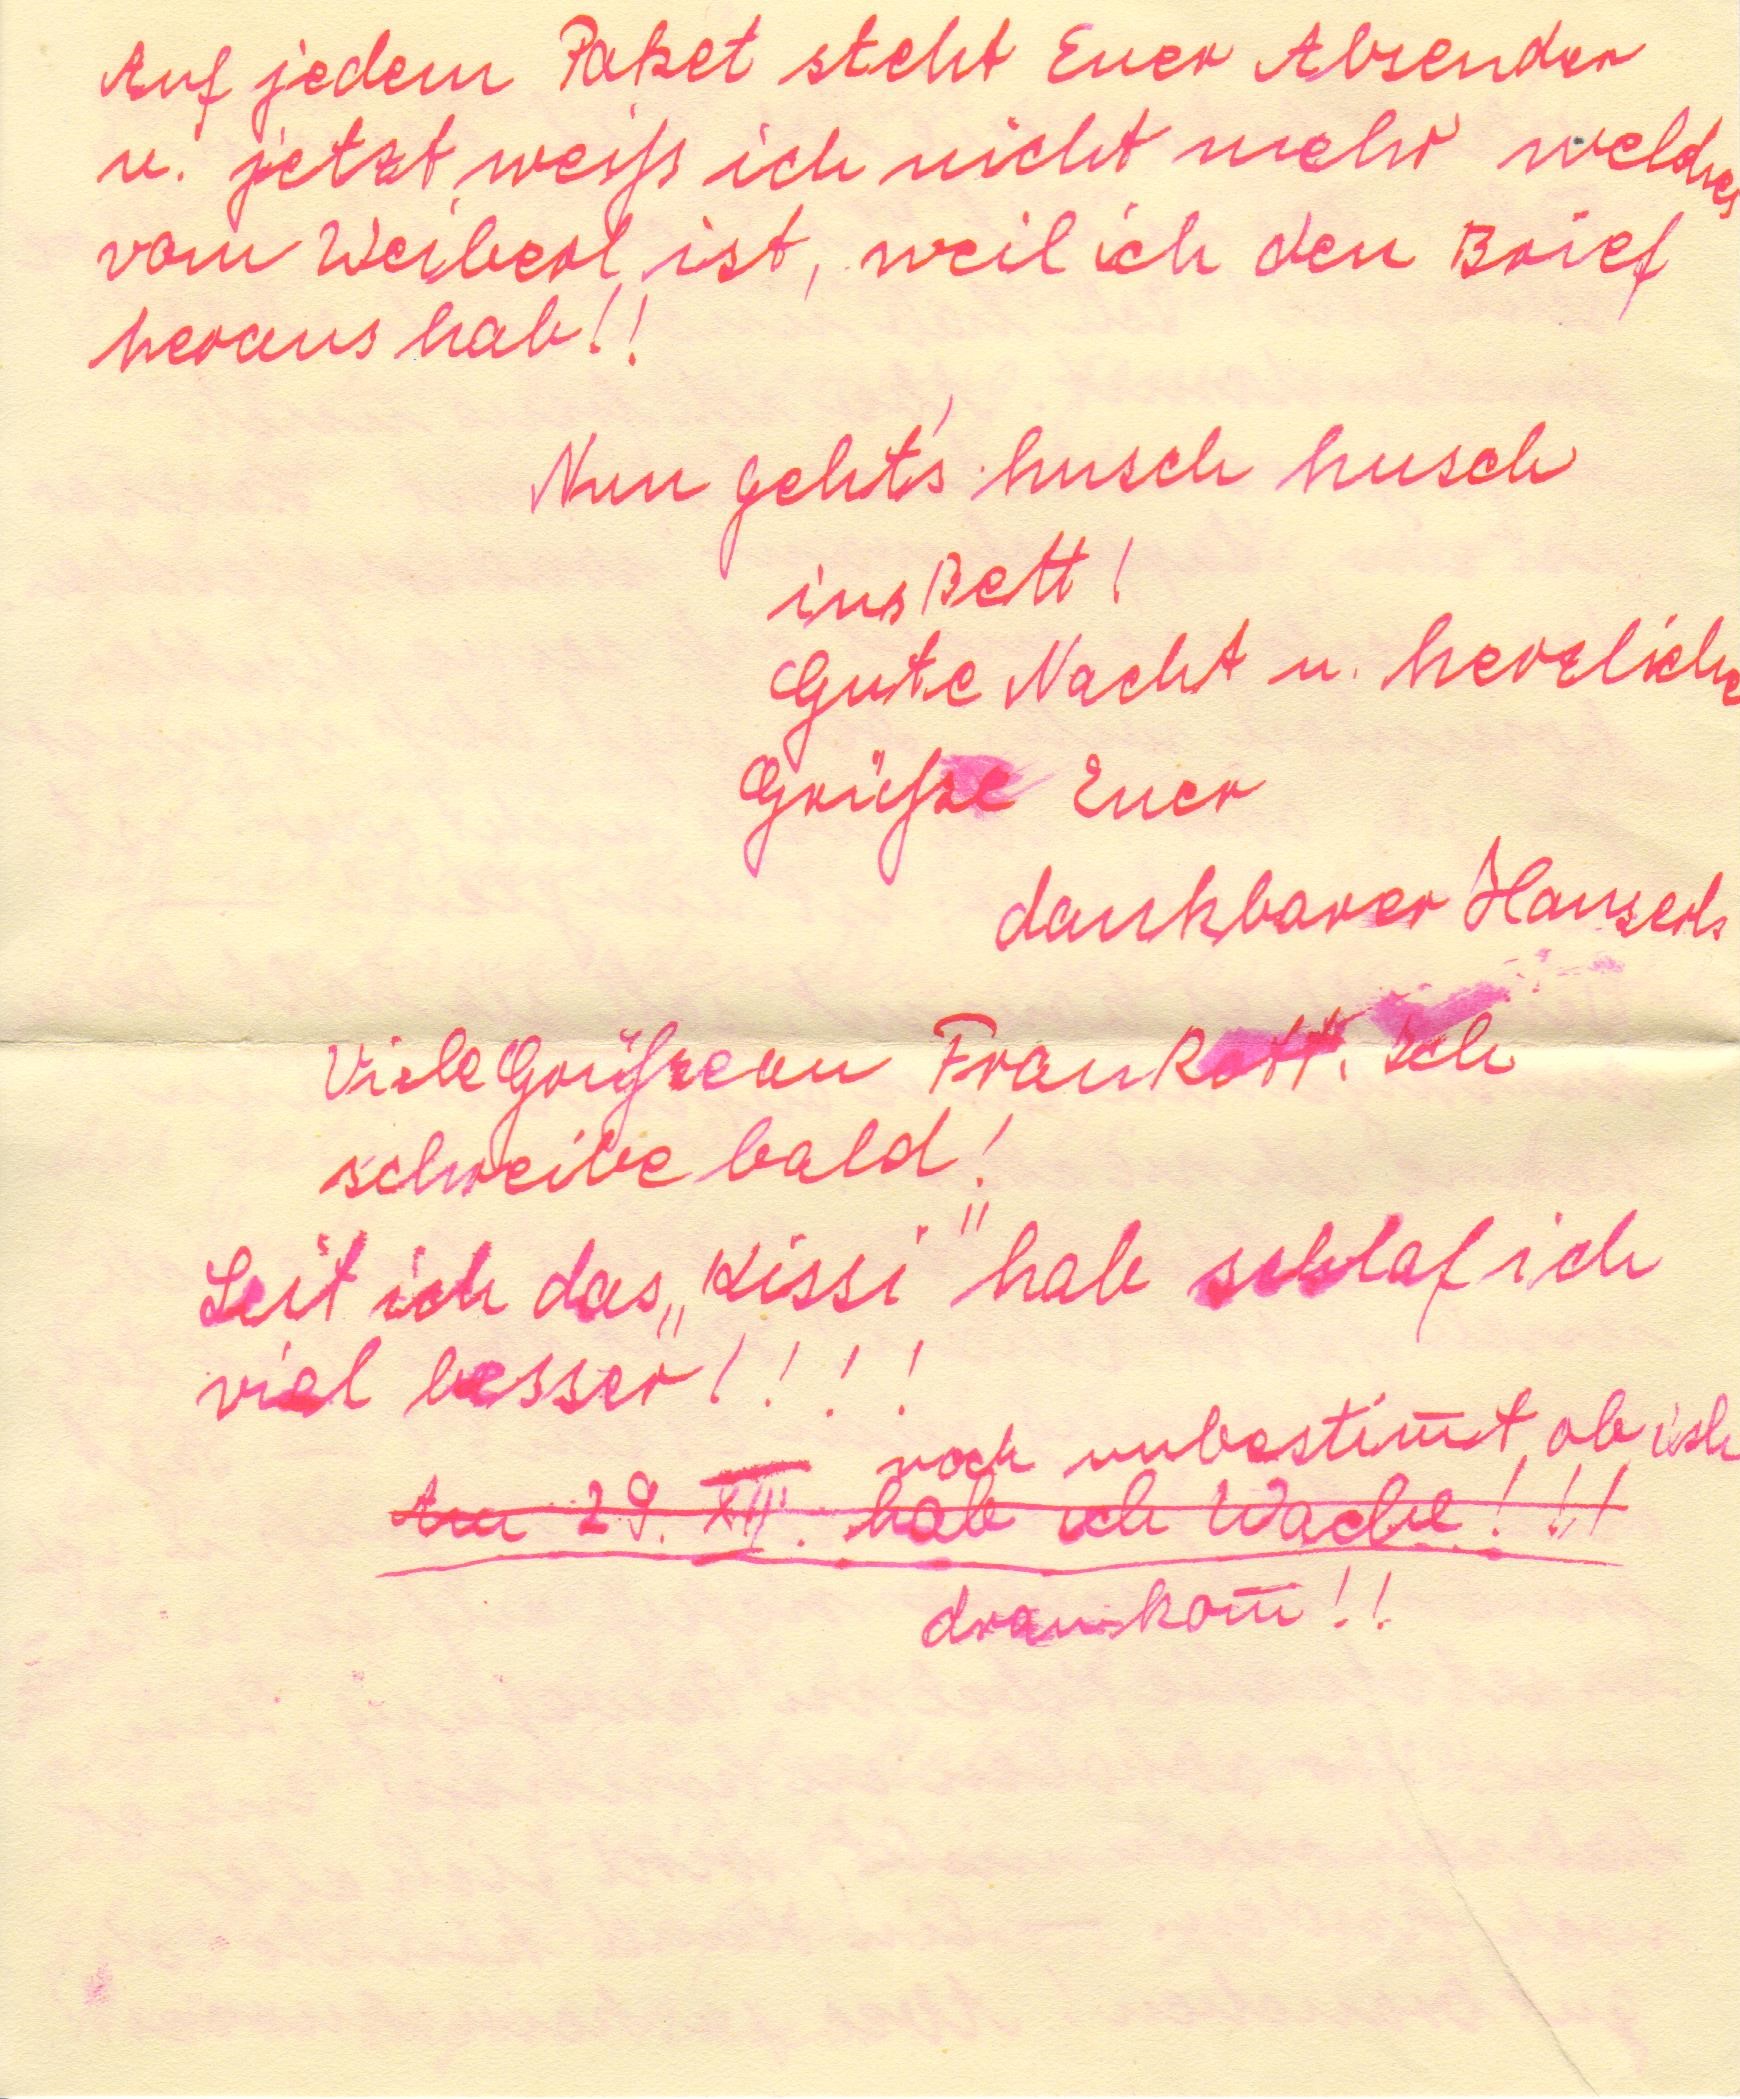 Auf jedem Paket steht Euer Absender
u. jetzt weiß ich nicht mehr welches
vom Weiberl ist, weil ich den Brief
heraus hab!!
Nun geht's husch husch
ins Bett!
Gute Nacht u. herzliche
Grüße Euer
dankbarer Hanserl
Viele Grüße an Frau Rott. Ich
schreibe bald!
Seit ich das „Kissi" hab schlaf ich
viel besser!!!!
noch unbestim̅t, ob ich
Am 29. XII. hab ich Wache!!!
drankom̅!!